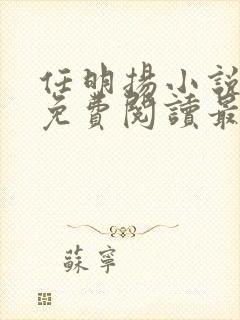 任明揚小說
免費閱讀最
蘇寧